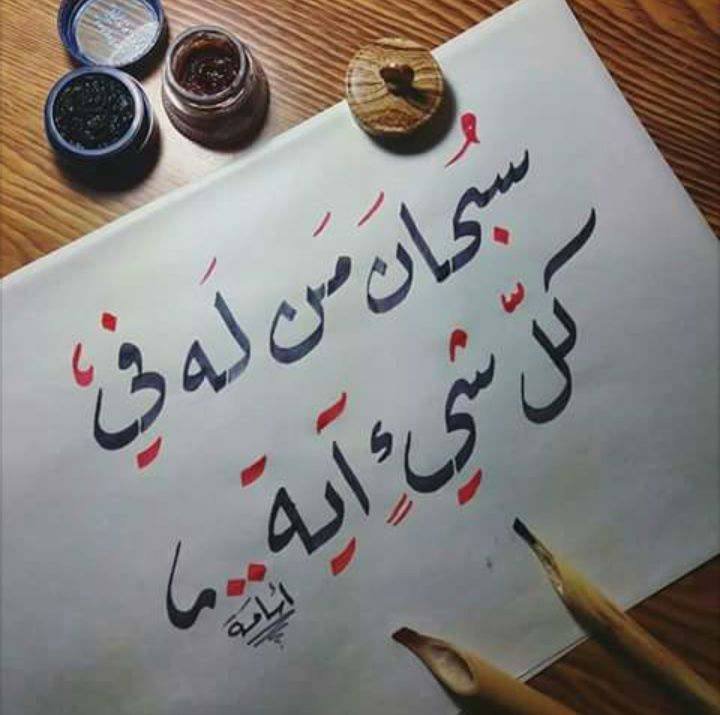 سُبحانَ مَن لَه في
كلّ شيءٍ آية..
أسامة